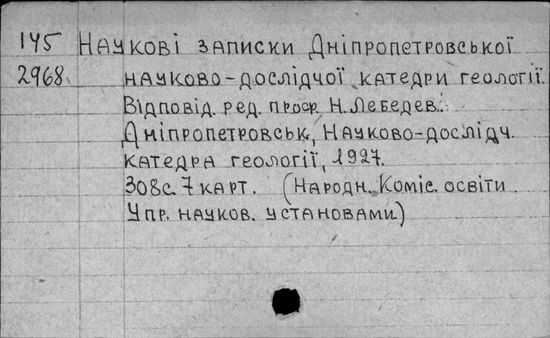 145 Наукові записки Дніпропетровської
2968 науково-дослідчої катедри геології.
Відповід. ред. проф. Н. Лебедев.
Дніпропетровськ, Науково-дослідч.
катедра геології, 1927.
308с. 7 карт. (Народн. Коміс. освіти.
Упр. науков. установами)